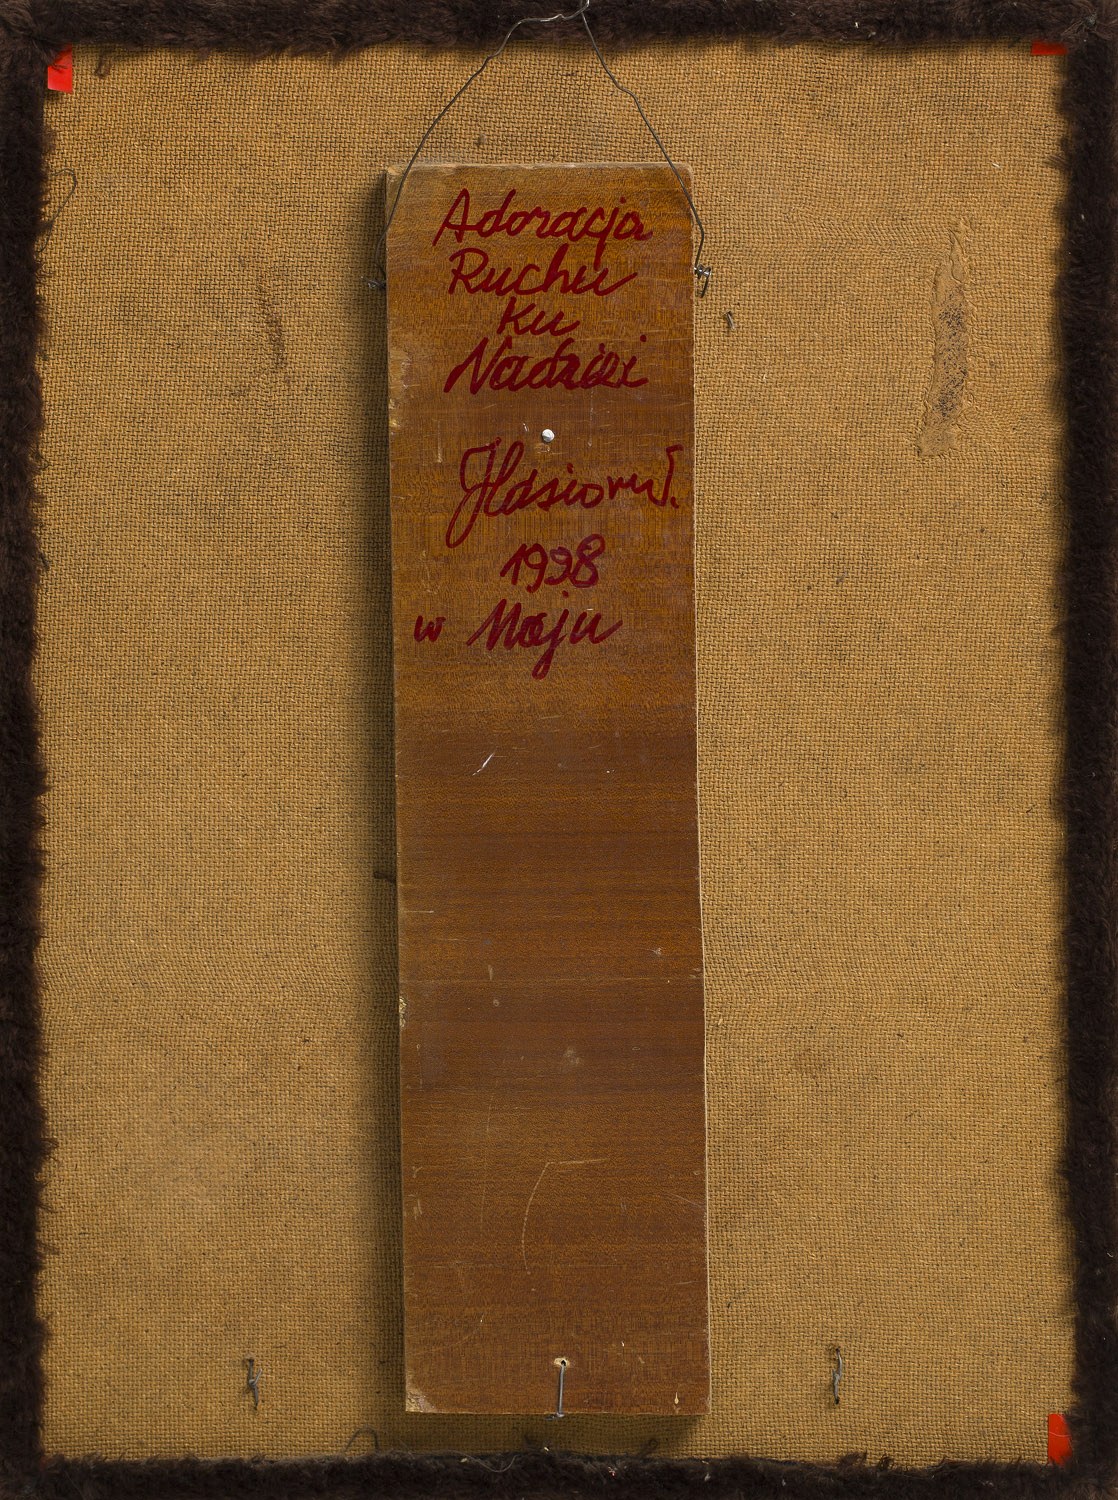 Adoracja
Ruchu
Ku
Nadziei
Hasior W.
1998
w Maju